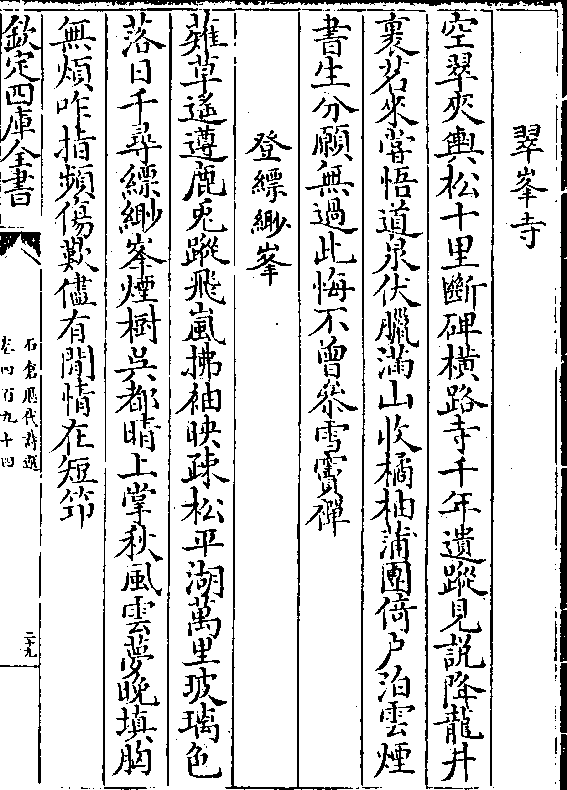 翠峯寺
空翠夾輿松十里斷碑横路寺千年遺蹤見説降龍井
裹茗來嘗悟道泉伏臘滿山收橘柚蒲團倚户泊雲煙
書生分願無過此悔不曾叅雪竇禪
登縹緲峯
薙草遥遵鹿兎蹤飛嵐拂袖映疎松平湖萬里玻璃色
落日千尋縹緲峯煙樹吳都晴上掌秋風雲夢晚填胸
無煩咋指頻傷歎儘有閒情在短笻
欽定四庫全書
石倉歴代詩選
卷四百九十四
二十九